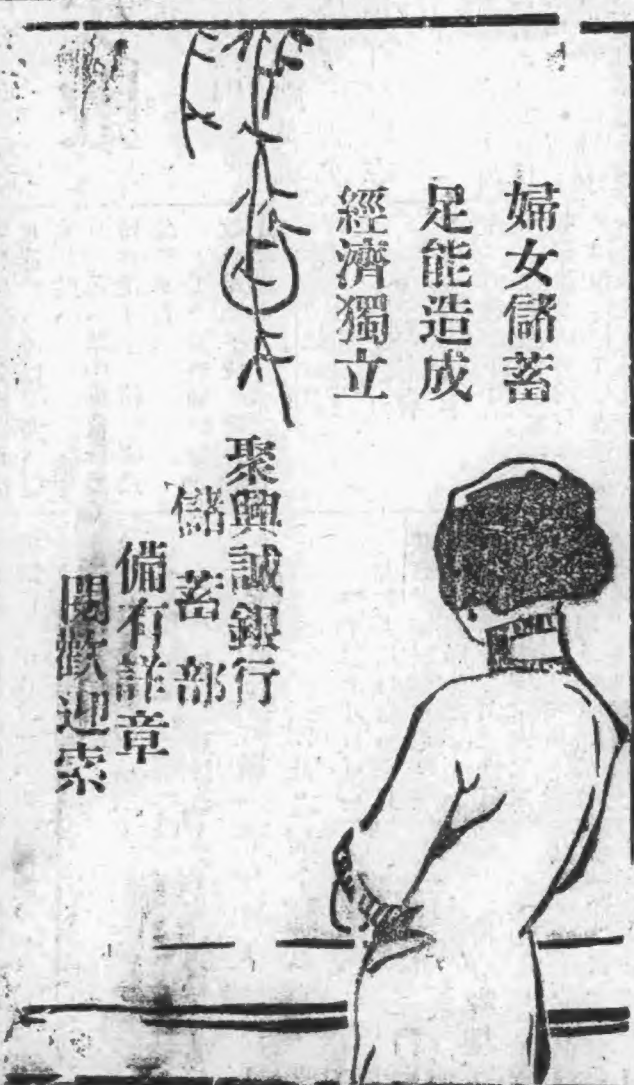 婦女儲蓄
足能造成
經濟獨立
聚興誠銀行
儲蓄部
備有詳章
閱歡迎索